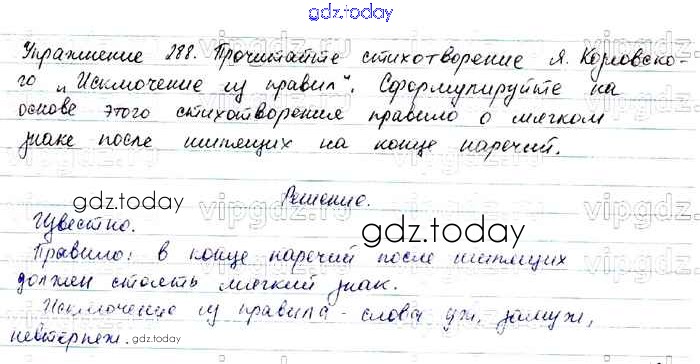 gdz.today
Упражнение 288. Прочитайте стихотворение Я. Козловско-
го „Исключение из правил“. Сформулируйте на
основе этого стихотворения правило о мягком
знаке после шипящих на конце наречий.
Решение.
gdz.today
Известно.
gdz.today
Правило: в конце наречий после шипящих
должен стоять мягкий знак.
Исключение из правила - слова уж, замуж,
невтерпеж.
gdz.today